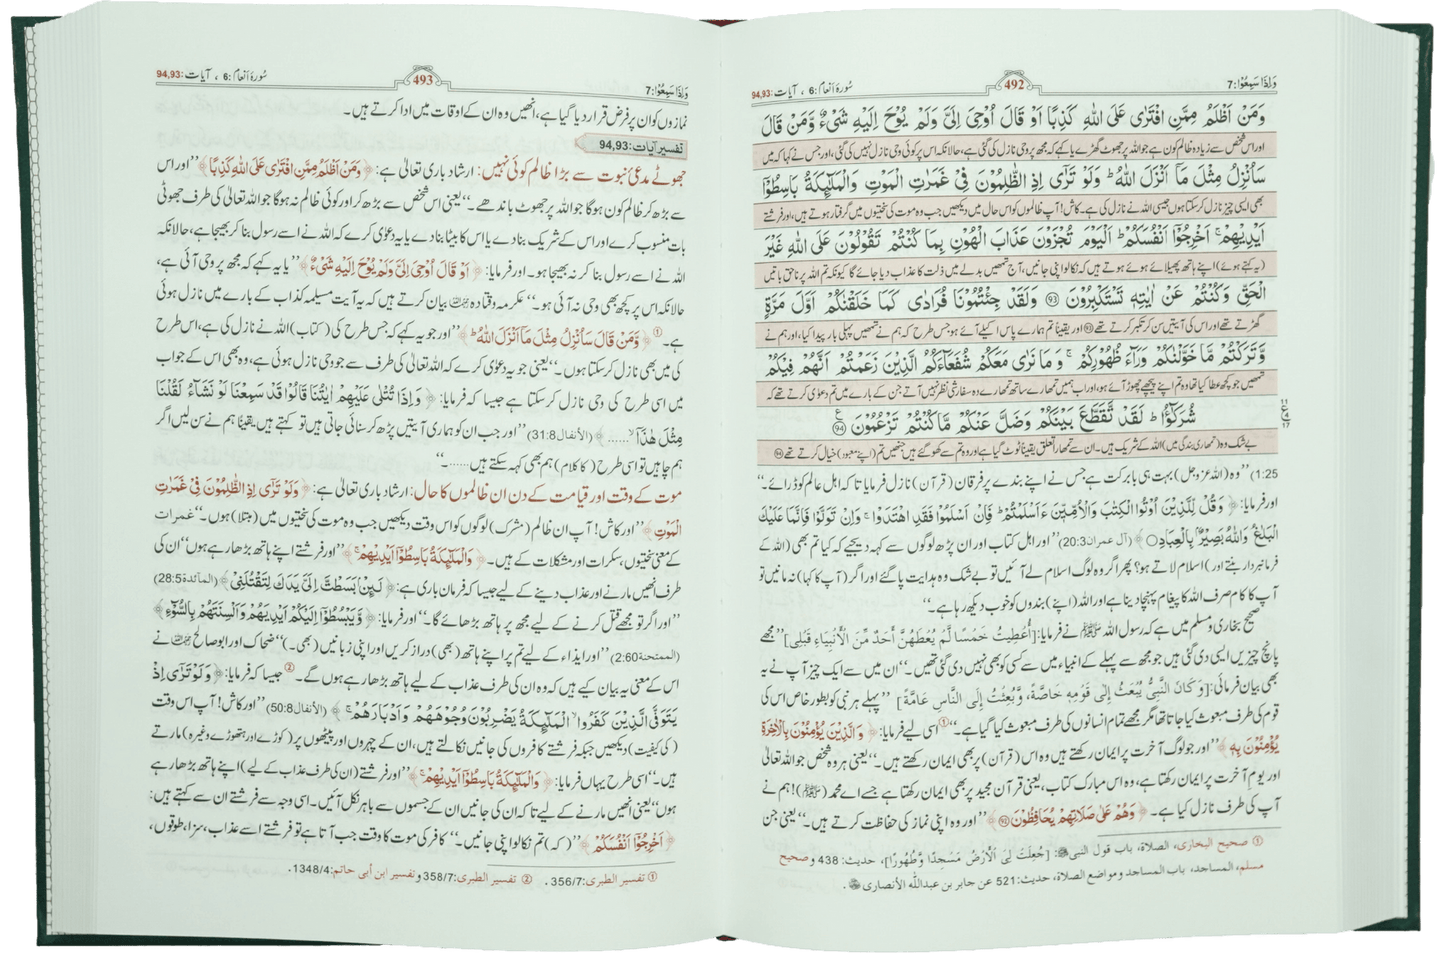 وَاِذَا سَمِعُوْا:7
492
سُورۂ اَنعام:6 ، آیات:94,93
وَمَنْ اَظْلَمُ مِمَّنِ افْتَرٰى عَلَى اللّٰهِ كَذِبًا اَوْ قَالَ اُوْحِيَ اِلَيَّ وَلَمْ يُوْحَ اِلَيْهِ شَيْءٌ وَّمَنْ قَالَ
اور اس شخص سے زیادہ ظالم کون ہے جو اللہ پر جھوٹ گھڑے یا کہے کہ مجھ پر وحی نازل کی گئی ہے، حالانکہ اس پر کوئی وحی نازل نہیں کی گئی، اور جس نے کہا کہ میں
سَاُنْزِلُ مِثْلَ مَآ اَنْزَلَ اللّٰهُ ؕ وَلَوْ تَرٰٓى اِذِ الظّٰلِمُوْنَ فِيْ غَمَرٰتِ الْمَوْتِ وَالْمَلٰٓئِكَةُ بَاسِطُوْٓا
بھی ایسی چیز نازل کر سکتا ہوں جیسی اللہ نے نازل کی ہے۔ کاش! آپ ظالموں کو اس حال میں دیکھیں جب وہ موت کی سختیوں میں گرفتار ہوتے ہیں، اور فرشتے
اَيْدِيْهِمْ ۚ اَخْرِجُوْٓا اَنْفُسَكُمْ ؕ اَلْيَوْمَ تُجْزَوْنَ عَذَابَ الْهُوْنِ بِمَا كُنْتُمْ تَقُوْلُوْنَ عَلَى اللّٰهِ غَيْرَ
(یہ کہتے ہوئے) اپنے ہاتھ پھیلائے ہوئے ہوتے ہیں کہ نکالو اپنی جانیں، آج تمھیں بدلے میں ذلت کا عذاب دیا جائے گا کیونکہ تم اللہ پر ناحق باتیں
الْحَقِّ وَكُنْتُمْ عَنْ اٰيٰتِهٖ تَسْتَكْبِرُوْنَ ۝93 وَلَقَدْ جِئْتُمُوْنَا فُرَادٰى كَمَا خَلَقْنٰكُمْ اَوَّلَ مَرَّةٍ
گھڑتے تھے اور اس کی آیتیں سن کر تکبر کرتے تھے 93 اور یقیناً تم ہمارے پاس اکیلے آئے ہو جس طرح کہ ہم نے تمھیں پہلی بار پیدا کیا، اور ہم نے
وَّتَرَكْتُمْ مَّا خَوَّلْنٰكُمْ وَرَآءَ ظُهُوْرِكُمْ ۚ وَمَا نَرٰى مَعَكُمْ شُفَعَآءَكُمُ الَّذِيْنَ زَعَمْتُمْ اَنَّهُمْ فِيْكُمْ
تمھیں جو کچھ عطا کیا تھا وہ تم اپنے پیچھے چھوڑ آئے ہو، اور اب ہمیں تمھارے ساتھ تمھارے وہ سفارشی نظر نہیں آتے جن کے بارے میں تم دعویٰ کرتے تھے کہ
شُرَكٰٓؤُا ؕ لَقَدْ تَّقَطَّعَ بَيْنَكُمْ وَضَلَّ عَنْكُمْ مَّا كُنْتُمْ تَزْعُمُوْنَ ۝94
بے شک وہ (تمھاری بندگی میں) اللہ کے شریک ہیں۔ ان سے تمھارا تعلق یقیناً ٹوٹ گیا ہے اور وہ تم سے کھو گئے ہیں جنھیں تم (اپنے معبود) خیال کرتے تھے 94
1:25 ’’وہ (اللہ عزوجل) بہت ہی بابرکت ہے جس نے اپنے بندے پر فرقان (قرآن) نازل فرمایا تاکہ اہل عالم کو ڈرائے۔‘‘
اور فرمایا: ﴿وَقُلْ لِّلَّذِيْنَ اُوْتُوا الْكِتٰبَ وَالْاُمِّيّٖنَ ءَاَسْلَمْتُمْ ؕ فَاِنْ اَسْلَمُوْا فَقَدِ اهْتَدَوْا ۚ وَاِنْ تَوَلَّوْا فَاِنَّمَا عَلَيْكَ
الْبَلٰغُ ؕ وَاللّٰهُ بَصِيْرٌۢ بِالْعِبَادِ○﴾ (آل عمران 20:3) ’’اور اہل کتاب اور ان پڑھ لوگوں سے کہہ دیجیے کہ کیا تم بھی (اللہ کے
فرمانبردار بنتے اور) اسلام لاتے ہو؟ پھر اگر وہ لوگ اسلام لے آئیں تو بے شک وہ ہدایت پا گئے اور اگر (آپ کا کہا) نہ مانیں تو
آپ کا کام صرف اللہ کا پیغام پہنچا دینا ہے اور اللہ (اپنے) بندوں کو خوب دیکھ رہا ہے۔‘‘
صحیح بخاری و مسلم میں ہے کہ رسول اللہ ﷺ نے فرمایا: [أُعْطِيتُ خَمْسًا لَّمْ يُعْطَهُنَّ أَحَدٌ مِّنَ الْأَنْبِيَاءِ قَبْلِي] ’’مجھے
پانچ چیزیں ایسی دی گئی ہیں جو مجھ سے پہلے کے انبیاء میں سے کسی کو بھی نہیں دی گئی تھیں۔‘‘ ان میں سے ایک چیز آپ نے یہ
بھی بیان فرمائی: [وَكَانَ النَّبِيُّ يُبْعَثُ إِلٰى قَوْمِهِ خَاصَّةً، وَبُعِثْتُ إِلَى النَّاسِ عَامَّةً] ’’پہلے ہر نبی کو بطور خاص اس کی
قوم کی طرف مبعوث کیا جاتا تھا مگر مجھے تمام انسانوں کی طرف مبعوث کیا گیا ہے۔‘‘① اسی لیے فرمایا: ﴿وَالَّذِيْنَ يُؤْمِنُوْنَ بِالْاٰخِرَةِ
يُؤْمِنُوْنَ بِهٖ﴾ ’’اور جو لوگ آخرت پر ایمان رکھتے ہیں وہ اس (قرآن) پر بھی ایمان رکھتے ہیں۔‘‘ یعنی ہر وہ شخص جو اللہ تعالیٰ
اور یوم آخرت پر ایمان رکھتا ہے، وہ اس مبارک کتاب، یعنی قرآن مجید پر بھی ایمان رکھتا ہے جسے اے محمد (ﷺ)! ہم نے
آپ کی طرف نازل کیا ہے۔ ﴿وَهُمْ عَلٰى صَلَاتِهِمْ يُحَافِظُوْنَ۝﴾ ’’اور وہ اپنی نماز کی حفاظت کرتے ہیں۔‘‘ یعنی جن
① صحيح البخاري، الصلاة، باب قول النبي ﷺ: [جُعِلَتْ لِيَ الْأَرْضُ مَسْجِدًا وَّطَهُورًا]، حديث: 438 و صحيح
مسلم، المساجد، باب المساجد ومواضع الصلاة، حديث: 521 عن جابر بن عبدالله الأنصاري .
وَاِذَا سَمِعُوْا:7
493
سُورۂ اَنعام:6 ، آیات:94,93
نمازوں کو ان پر فرض قرار دیا گیا ہے، انھیں وہ ان کے اوقات میں ادا کرتے ہیں۔
تفسیر آیات:94,93
جھوٹے مدعیٔ نبوت سے بڑا ظالم کوئی نہیں: ارشاد باری تعالیٰ ہے: ﴿وَمَنْ اَظْلَمُ مِمَّنِ افْتَرٰى عَلَى اللّٰهِ كَذِبًا﴾ ’’اور اس
سے بڑھ کر ظالم کون ہوگا جو اللہ پر جھوٹ باندھے۔‘‘ یعنی اس شخص سے بڑھ کر اور کوئی ظالم نہ ہوگا جو اللہ تعالیٰ کی طرف جھوٹی
بات منسوب کرے اور اس کے شریک بنا دے یا اس کا بیٹا بنا دے یا یہ دعویٰ کرے کہ اللہ نے اسے رسول بنا کر بھیجا ہے، حالانکہ
اللہ نے اسے رسول بنا کر نہ بھیجا ہو۔ اور فرمایا: ﴿اَوْ قَالَ اُوْحِيَ اِلَيَّ وَلَمْ يُوْحَ اِلَيْهِ شَيْءٌ﴾ ’’یا یہ کہے کہ مجھ پر وحی آئی ہے،
حالانکہ اس پر کچھ بھی وحی نہ آئی ہو۔‘‘ عکرمہ و قتادہ بیان کرتے ہیں کہ یہ آیت مسیلمہ کذاب کے بارے میں نازل ہوئی
ہے۔① ﴿وَّمَنْ قَالَ سَاُنْزِلُ مِثْلَ مَآ اَنْزَلَ اللّٰهُ ؕ﴾ ’’اور جو یہ کہے کہ جس طرح کی (کتاب) اللہ نے نازل کی ہے، اس طرح
کی میں بھی نازل کر سکتا ہوں۔‘‘ یعنی جو یہ دعویٰ کرے کہ اللہ تعالیٰ کی طرف سے جو وحی نازل ہوئی ہے، وہ بھی اس کے جواب
میں اسی طرح کی وحی نازل کر سکتا ہے جیسا کہ فرمایا: ﴿وَاِذَا تُتْلٰى عَلَيْهِمْ اٰيٰتُنَا قَالُوْا قَدْ سَمِعْنَا لَوْ نَشَآءُ لَقُلْنَا
مِثْلَ هٰذَآ ۙ......﴾ (الأنفال 31:8) ’’اور جب ان کو ہماری آیتیں پڑھ کر سنائی جاتی ہیں تو کہتے ہیں یقیناً ہم نے سن لیں اگر
ہم چاہیں تو اسی طرح (کا کلام) ہم بھی کہہ سکتے ہیں......۔‘‘
موت کے وقت اور قیامت کے دن ان ظالموں کا حال: ارشاد باری تعالیٰ ہے: ﴿وَلَوْ تَرٰٓى اِذِ الظّٰلِمُوْنَ فِيْ غَمَرٰتِ
الْمَوْتِ﴾ ’’اور کاش! آپ ان ظالم (مشرک) لوگوں کو اس وقت دیکھیں جب وہ موت کی سختیوں میں (مبتلا) ہوں۔‘‘ غمرات
کے معنی سختیوں، سکرات اور مشکلات کے ہیں۔ ﴿وَالْمَلٰٓئِكَةُ بَاسِطُوْٓا اَيْدِيْهِمْ ۚ﴾ ’’اور فرشتے اپنے ہاتھ بڑھا رہے ہوں‘‘ ان کی
طرف انھیں مارنے اور عذاب دینے کے لیے جیسا کہ فرمان باری ہے: ﴿لَئِنْۢ بَسَطْتَّ اِلَيَّ يَدَكَ لِتَقْتُلَنِيْ﴾ (المآئدة 28:5)
’’اور اگر تو مجھے قتل کرنے کے لیے مجھ پر ہاتھ بڑھائے گا۔‘‘ اور فرمایا: ﴿وَّيَبْسُطُوْٓا اِلَيْكُمْ اَيْدِيَهُمْ وَاَلْسِنَتَهُمْ بِالسُّوْٓءِ﴾
(الممتحنة 2:60) ’’اور ایذاء کے لیے تم پر اپنے ہاتھ (بھی) دراز کریں اور اپنی زبانیں (بھی)۔‘‘ ضحاک اور ابوصالح نے
اس کے معنی یہ بیان کیے ہیں کہ وہ ان کی طرف عذاب کے لیے ہاتھ بڑھا رہے ہوں گے۔② جیسا کہ فرمایا: ﴿وَلَوْ تَرٰٓى اِذْ
يَتَوَفَّى الَّذِيْنَ كَفَرُوا ۙ الْمَلٰٓئِكَةُ يَضْرِبُوْنَ وُجُوْهَهُمْ وَاَدْبَارَهُمْ ۚ﴾ (الأنفال 50:8) ’’اور کاش! آپ اس وقت
(کی کیفیت) دیکھیں جبکہ فرشتے کافروں کی جانیں نکالتے ہیں، ان کے چہروں اور پیٹھوں پر (کوڑے اور ہتھوڑے وغیرہ) مارتے
ہیں۔‘‘ اسی طرح یہاں فرمایا: ﴿وَالْمَلٰٓئِكَةُ بَاسِطُوْٓا اَيْدِيْهِمْ ۚ﴾ ’’اور فرشتے (ان کی طرف عذاب کے لیے) اپنے ہاتھ بڑھا رہے
ہوں‘‘ یعنی انھیں مارنے کے لیے تاکہ ان کی جانیں ان کے جسموں سے باہر نکل آئیں۔ اسی وجہ سے فرشتے ان سے کہتے ہیں:
﴿اَخْرِجُوْٓا اَنْفُسَكُمْ﴾ ’’(کہ) تم نکالو اپنی جانیں۔‘‘ کافر کی موت کا وقت جب آتا ہے تو فرشتے اسے عذاب، سزا، طوقوں،
① تفسير الطبري: 356/7. ② تفسير الطبري: 358/7 و تفسير ابن أبي حاتم: 1348/4.